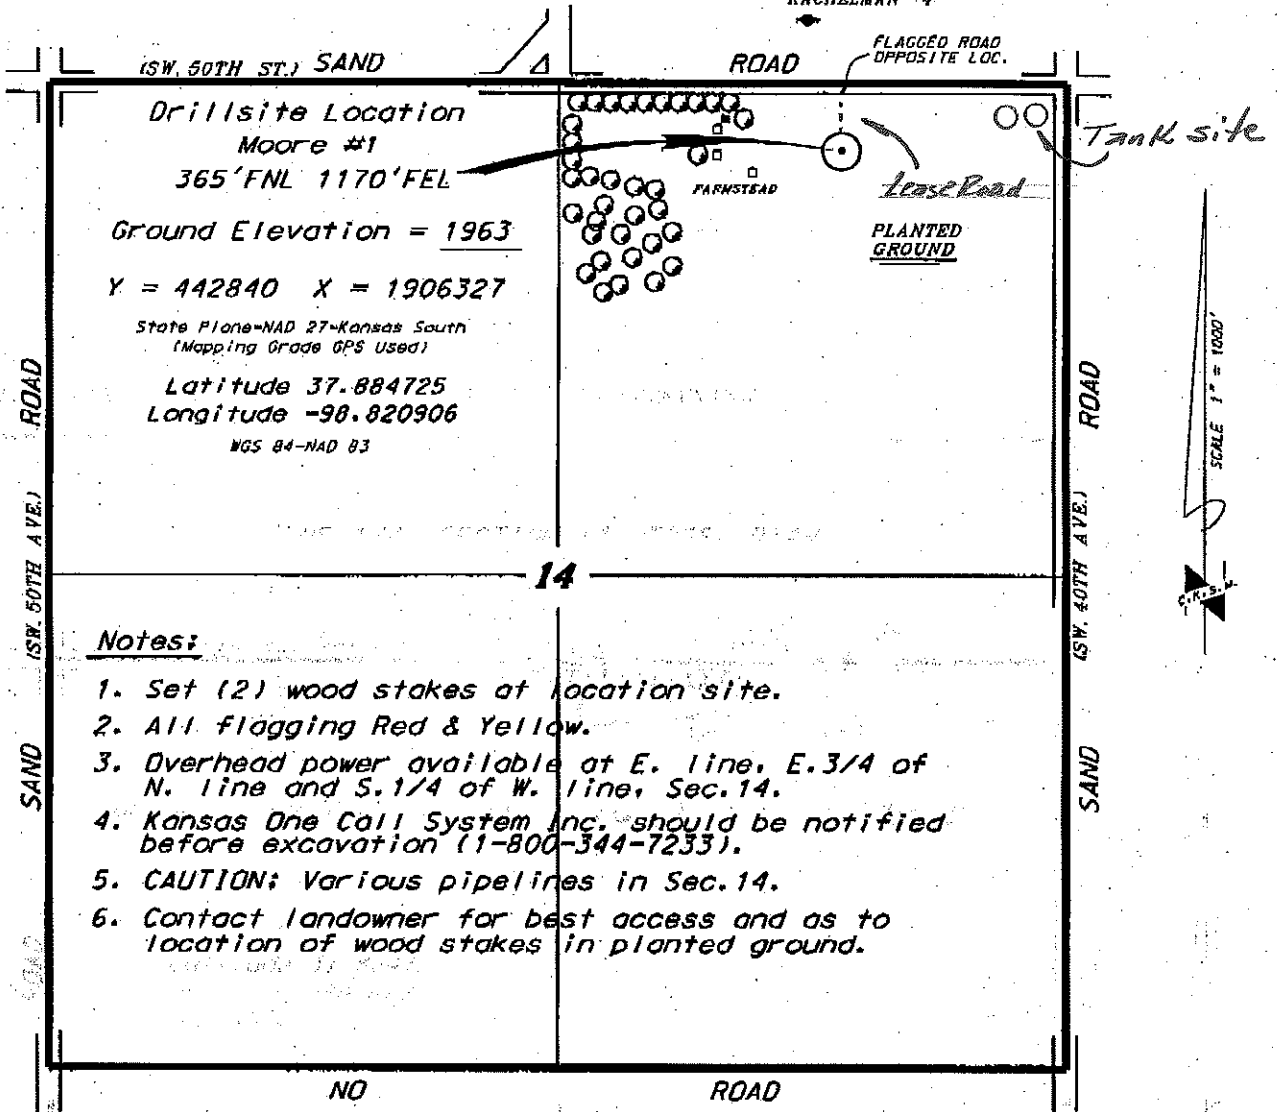 (SW. 50TH ST.) SAND
ROAD
FLAGGED ROAD
OPPOSITE LOC.
Drillsite Location
Moore #1
365'FNL 1170'FEL
Ground Elevation = 1963
Y = 442840 X = 1906327
State Plane-NAD 27-Kansas South
(Mapping Grade GPS Used)
Latitude 37.884725
Longitude -98.820906
WGS 84-NAD 83
FARMSTEAD
Lease Road
Tank site
PLANTED
GROUND
ROAD
(SW. 50TH AVE.)
SAND
ROAD
(SW. 40TH AVE.)
SAND
SCALE 1" = 1000'
C.K.S.M.
14
Notes:
1. Set (2) wood stakes at location site.
2. All flagging Red & Yellow.
3. Overhead power available at E. line, E.3/4 of
N. line and S.1/4 of W. line, Sec.14.
4. Kansas One Call System Inc. should be notified
before excavation (1-800-344-7233).
5. CAUTION: Various pipelines in Sec.14.
6. Contact landowner for best access and as to
location of wood stakes in planted ground.
NO
ROAD